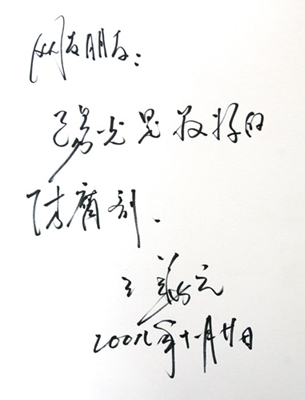 网友朋友：
陽光是最好的
防腐剂.
王
2008年十一月廿日